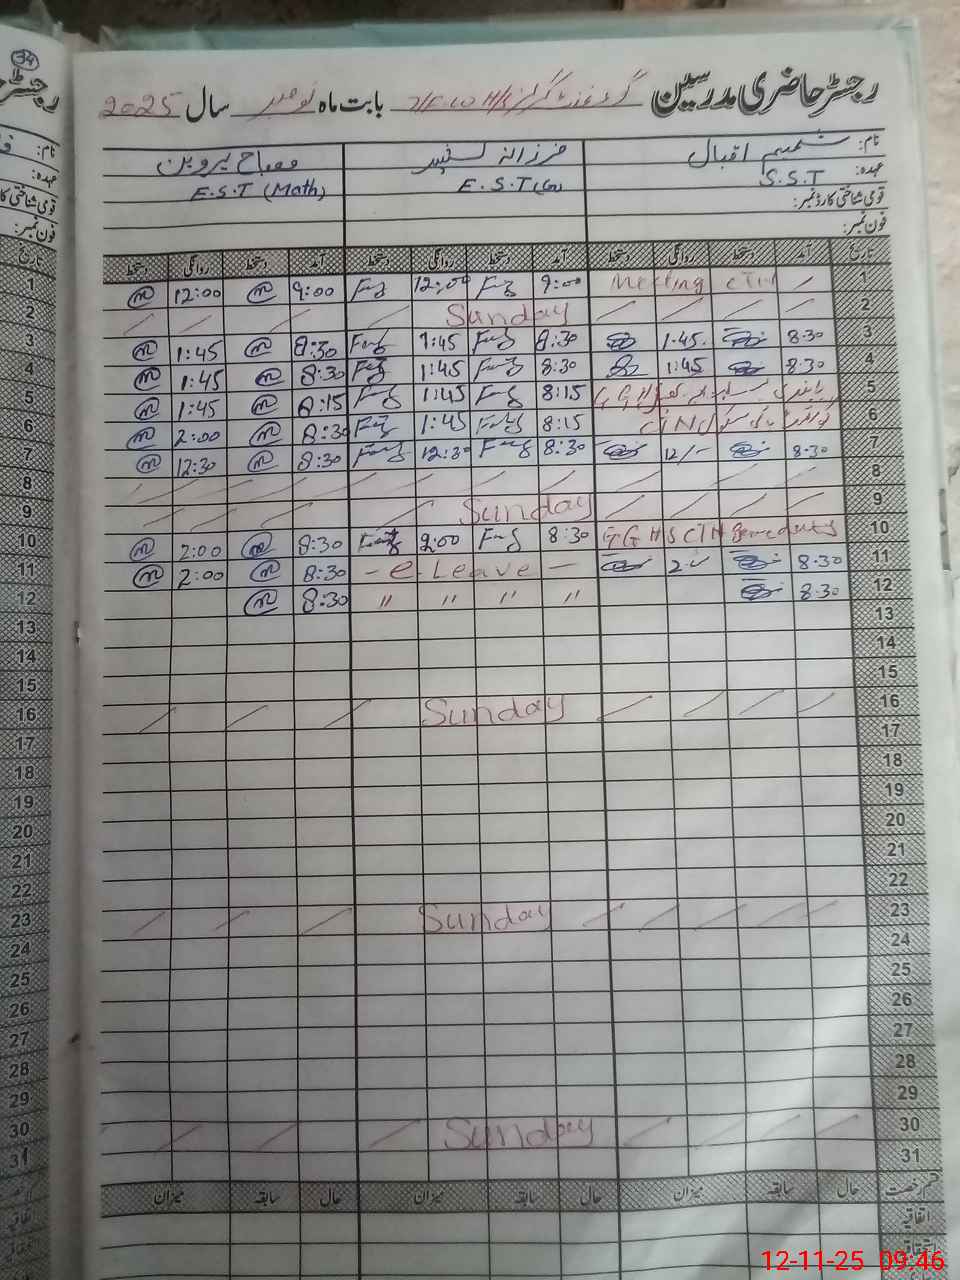 34
رجسٹر حاضری مدرسین گورنمنٹ گرلز بابت ماہ نومبر سال 2025
نام: شمیم اقبال فرزانہ مصباح پروین
عہدہ: S.S.T E.S.T E.S.T (Math)
قومی شناختی کارڈ نمبر:
فون نمبر:
تاریخ آمد دستخط روانگی دستخط آمد دستخط روانگی دستخط آمد دستخط روانگی دستخط
1 Meeting 9:00 12:00 9:00 12:00
2 Sunday
3 8:30 1:45 8:30 1:45 8:30 1:45
4 8:30 1:45 8:30 1:45 8:30 1:45
5 8:15 1:45 8:15 1:45
6 8:15 1:45 8:30 2:00
7 8:30 12/- 8:30 12:30 8:30 12:30
8
9 Sunday
10 GGHS 8:30 2:00 8:30 2:00
11 8:30 - e-Leave - 8:30 2:00
12 8:30 " " " " 8:30
13
14
15
16 Sunday
17
18
19
20
21
22
23 Sunday
24
25
26
27
28
29
30 Sunday
31
قسم رخصت حال سابقہ میزان حال سابقہ میزان حال سابقہ میزان
اتفاقیہ
استحقاقی
12-11-25 09:46